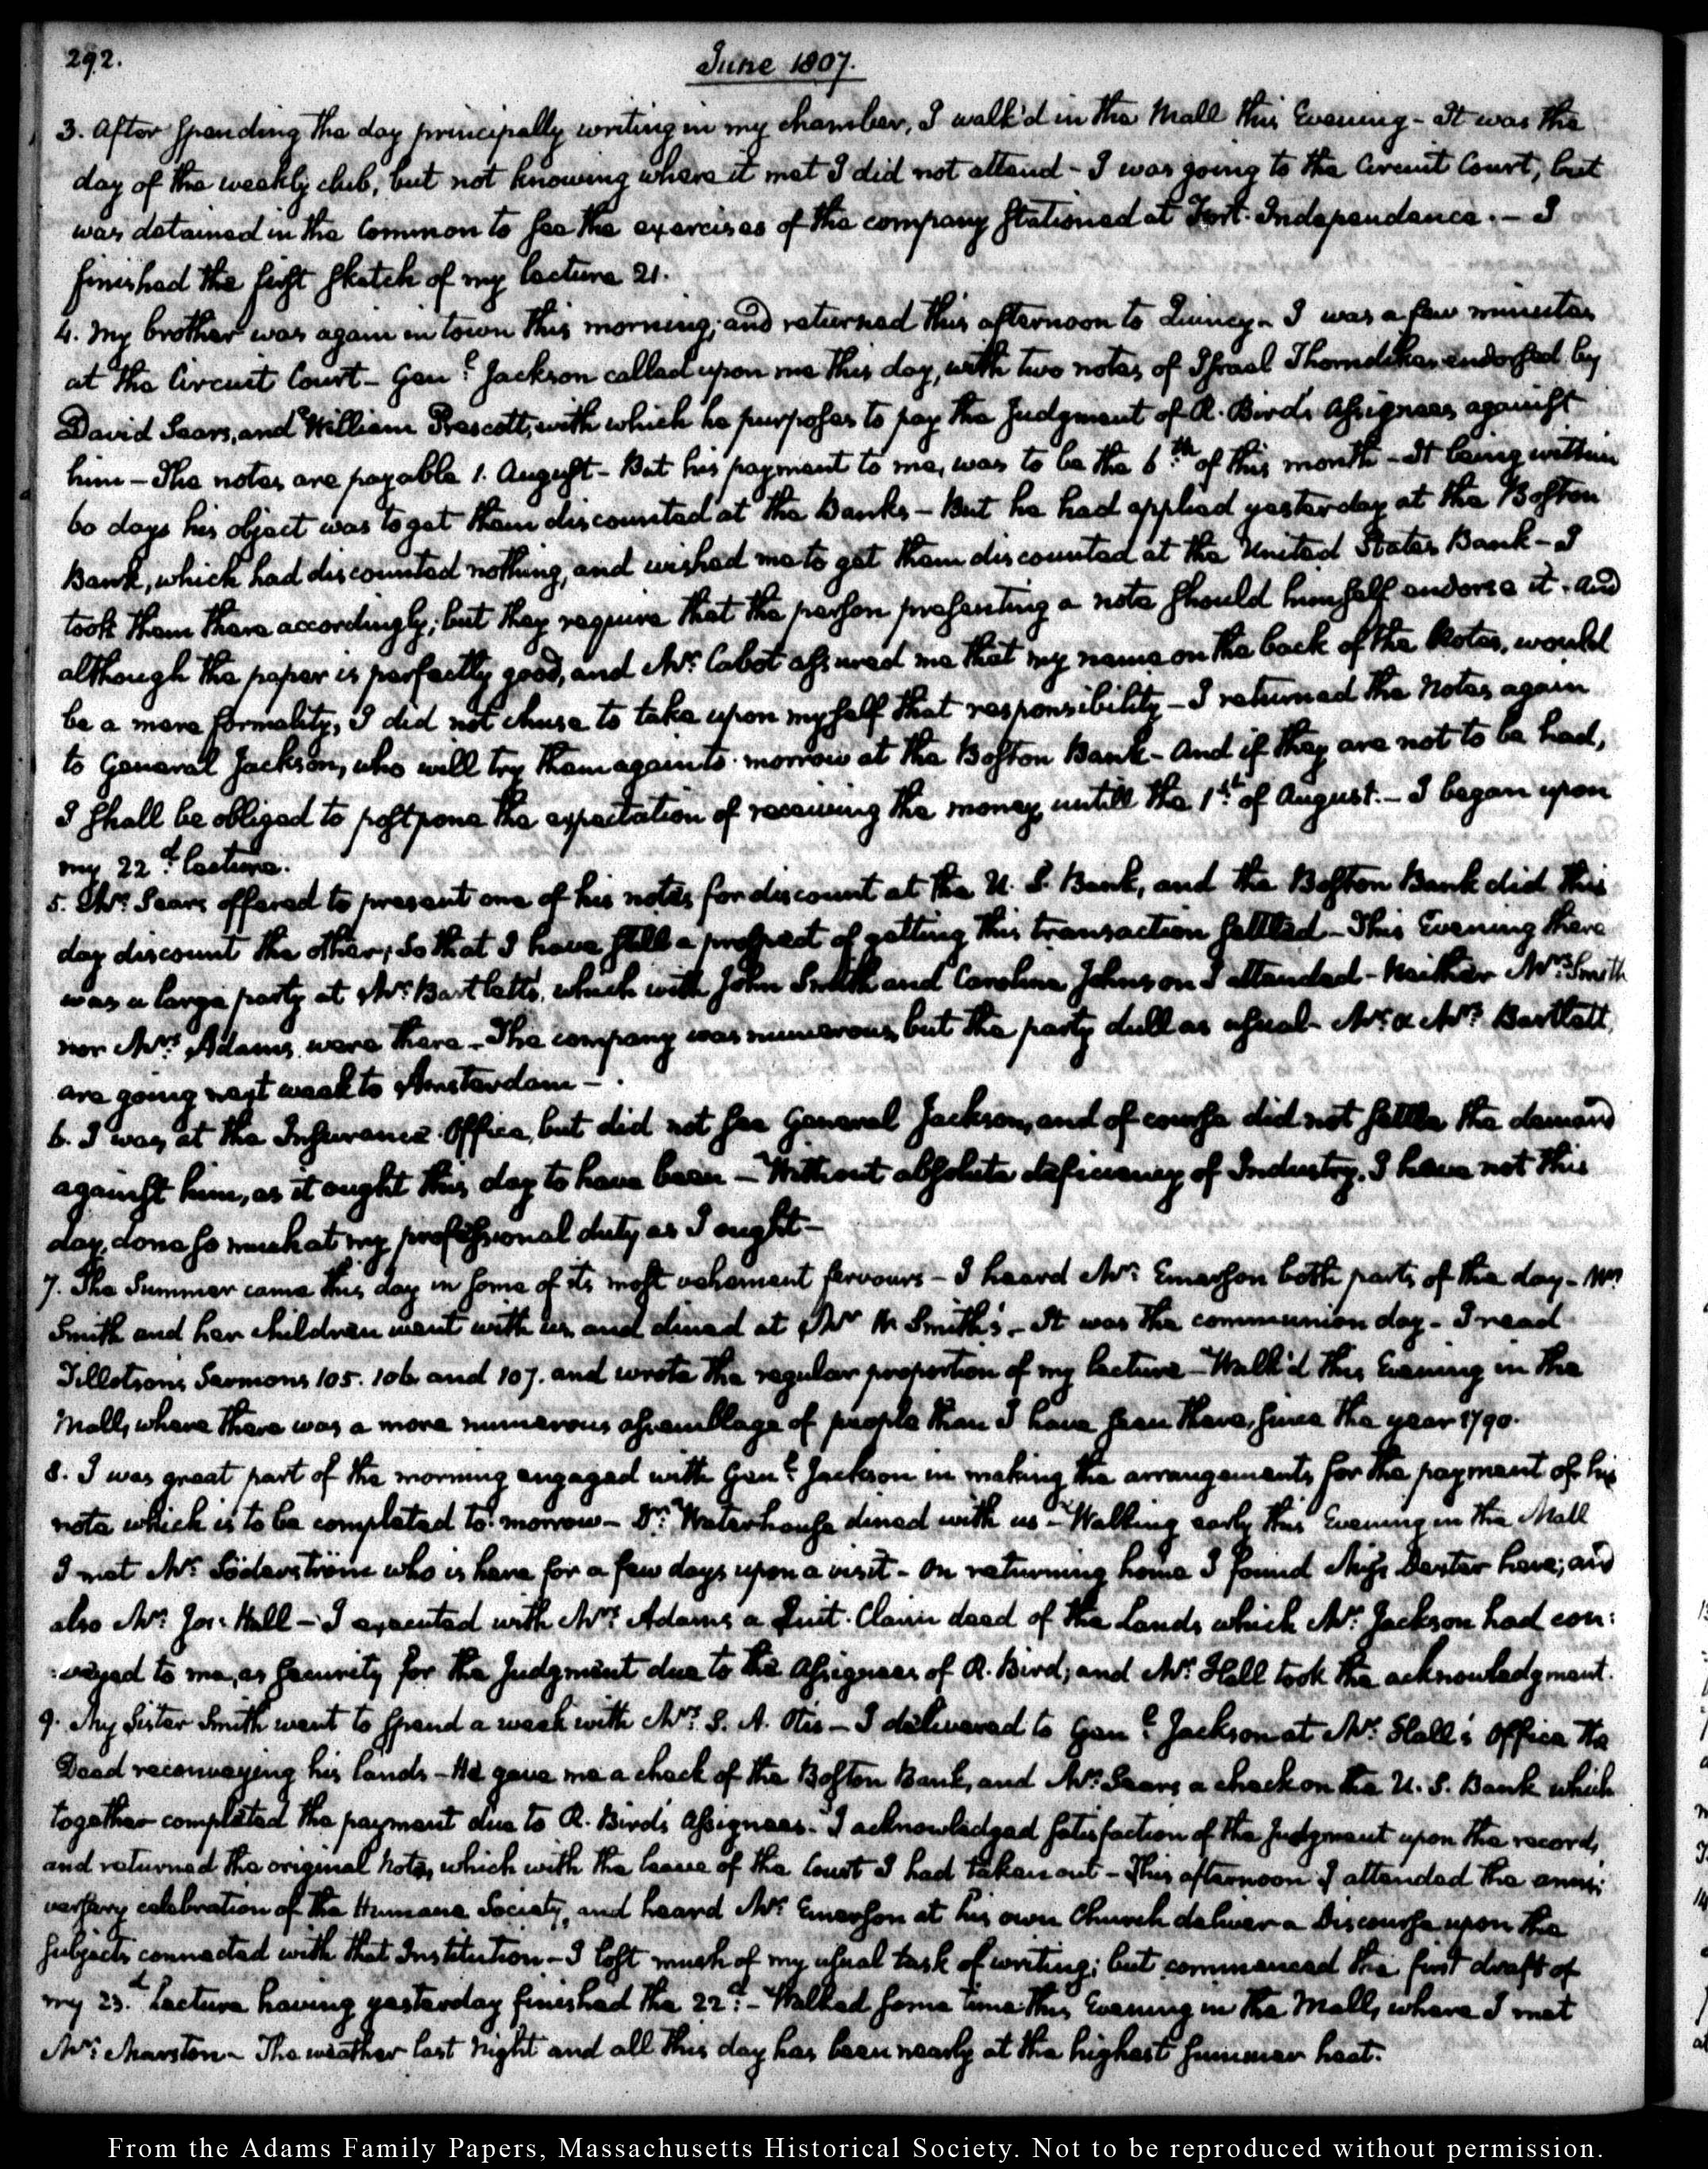 292.
June 1807.
3. After spending the day principally writing in my chamber, I walk'd in the Mall this Evening - It was the
day of the weekly club, but not knowing where it met I did not attend - I was going to the Circuit Court, but
was detained in the Common to see the exercises of the company stationed at Fort-Independence. - I
finished the first sketch of my lecture 21.
4. My brother was again in town this morning; and returned this afternoon to Quincy - I was a few minutes
at the Circuit Court - Genl. Jackson called upon me this day, with two notes of Israel Thorndike's endorsed by
David Sears, and William Prescott, with which he purposes to pay the Judgment of R. Bird's Assignees against
him - The notes are payable 1. August - But his payment to me, was to be the 6th. of this month - It being within
60 days his object was to get them discounted at the Banks - But he had applied yesterday at the Boston
Bank, which had discounted nothing, and wished me to get them discounted at the United States Bank - I
took them there accordingly; but they require that the person presenting a note should himself endorse it. And
although the paper is perfectly good, and Mr. Cabot assured me that my name on the back of the Notes, would
be a mere formality, I did not chuse to take upon myself that responsibility - I returned the Notes again
to General Jackson, who will try them again to-morrow at the Boston Bank - And if they are not to be had,
I shall be obliged to postpone the expectation of receiving the money, untill the 1st. of August. - I began upon
my 22d. lecture.
5. Mr. Sears offered to present one of his notes for discount at the U. S. Bank, and the Boston Bank did this
day discount the other; so that I have still a prospect of getting this transaction settled - This Evening there
was a large party at Mr. Bartlett's, which with John Smith and Caroline Johnson I attended - Neither Mrs. Smith
nor Mrs. Adams were there - The company was numerous, but the party dull as usual - Mr. & Mrs. Bartlett,
are going next week to Amsterdam -
6. I was at the Insurance Office, but did not see General Jackson, and of course did not settle the demand
against him, as it ought this day to have been - Without absolute deficiency of Industry, I have not this
day, done so much at my professional duty as I ought -
7. The Summer came this day in some of its most vehement fervours - I heard Mr. Emerson both parts of the day - Mrs.
Smith and her children went with us, and dined at Mr. Smith's - It was the communion day - I read
Tillotson's Sermons 105. 106 and 107. and wrote the regular proportion of my lecture - Walk'd this Evening in the
Mall, where there was a more numerous assemblage of people than I have seen there, since the year 1790.
8. I was great part of the morning engaged with Genl. Jackson in making the arrangements for the payment of his
note which is to be completed to-morrow - Dr. Waterhouse dined with us - Walking early this Evening in the Mall
I met Mr. Söderström who is here for a few days upon a visit - On returning home I found Miss Dexter here; and
also Mr. Jos: Hall - I executed with Mrs. Adams a Quit-Claim deed of the Lands which Mr. Jackson had con:
:veyed to me, as security for the Judgment due to the Assignees of R. Bird; and Mr. Hall took the acknowledgment.
9. My Sister Smith went to spend a week with Mrs. S. A. Otis - I delivered to Genl. Jackson at Mr. Hall's Office the
Deed reconveying his lands - He gave me a check of the Boston Bank, and Mr. Sears a check on the U. S. Bank which
together completed the payment due to R. Bird's Assignees. I acknowledged satisfaction of the Judgment upon the record,
and returned the original Note, which with the leave of the Court I had taken out - This afternoon I attended the anni:
versary celebration of the Humane Society, and heard Mr. Emerson at his own Church deliver a Discourse upon the
subjects connected with that Institution - I lost much of my usual task of writing; but commenced the first draft of
my 23d. Lecture having yesterday finished the 22d. - Walked some time this Evening in the Mall, where I met
Mr. Marston - The weather last Night and all this day has been nearly at the highest summer heat.
From the Adams Family Papers, Massachusetts Historical Society. Not to be reproduced without permission.